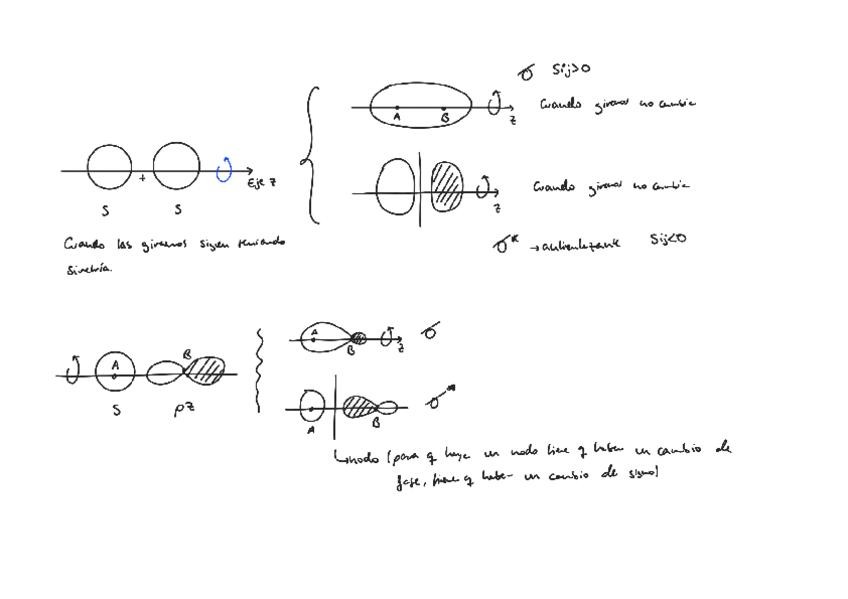 σ Sij>0
A B Z
Cuando giramos no cambia
+ Eje Z
S S
Cuando las giramos siguen teniendo
simetría.
Z
Cuando giramos no cambia
σ* → antienlazante Sij<0
A B Z σ
A B
S pZ
A B σ*
↳nodo (para q haya un nodo tiene q haber un cambio de
fase, tiene q haber un cambio de signo)